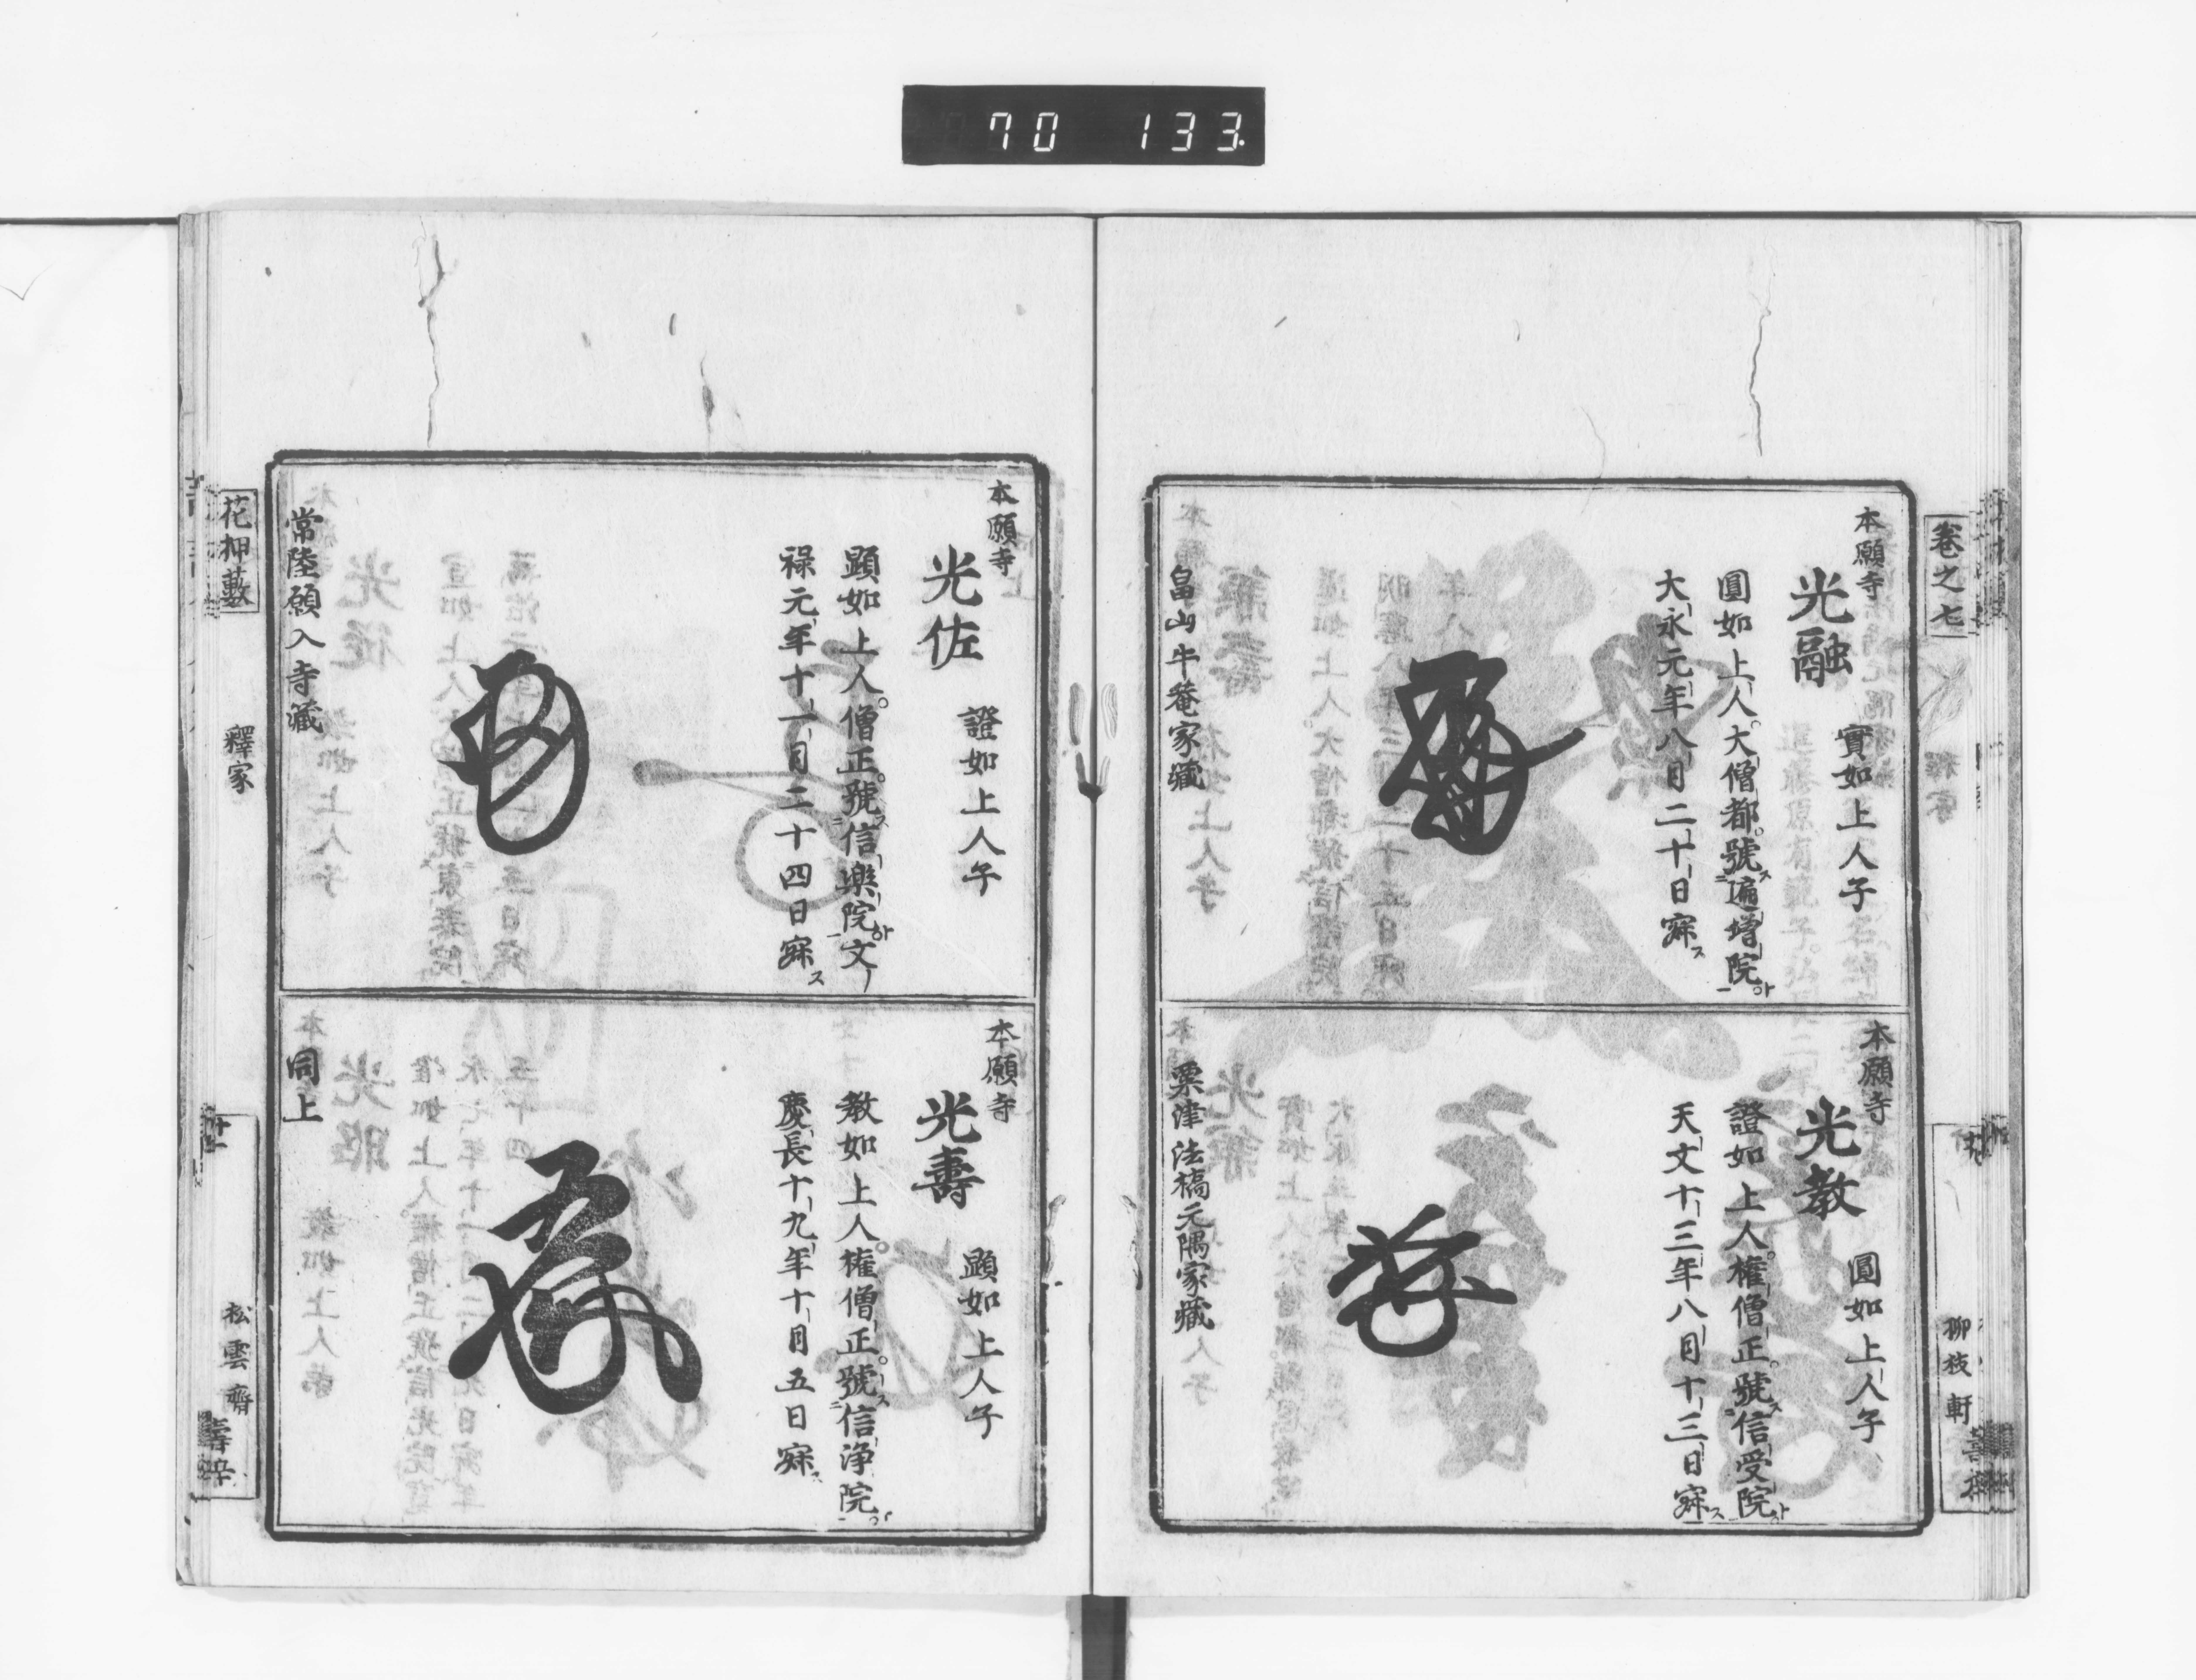 70 133
卷之七
柳枝軒
本願寺
光融
實如上人子
圓如上人。大僧都。號ス二遍增院ト一。
大永元年八月二十日寂ス
畠山牛菴家藏
本願寺
光教
圓如上人子
證如上人。權僧正。號ス二信受院ト一
天文十三年八月十三日寂ス
粟津法橋元隅家藏
本願寺
光佐
證如上人子
顕如上人。僧正。號ス二信樂院ト一文
祿元年十一月二十四日寂ス
常陸願入寺藏
本願寺
光壽
顕如上人子
教如上人。權僧正。號ス二信浄院ト一
慶長十九年十月五日寂ス
同上
花押藪
釋家
松雲齋